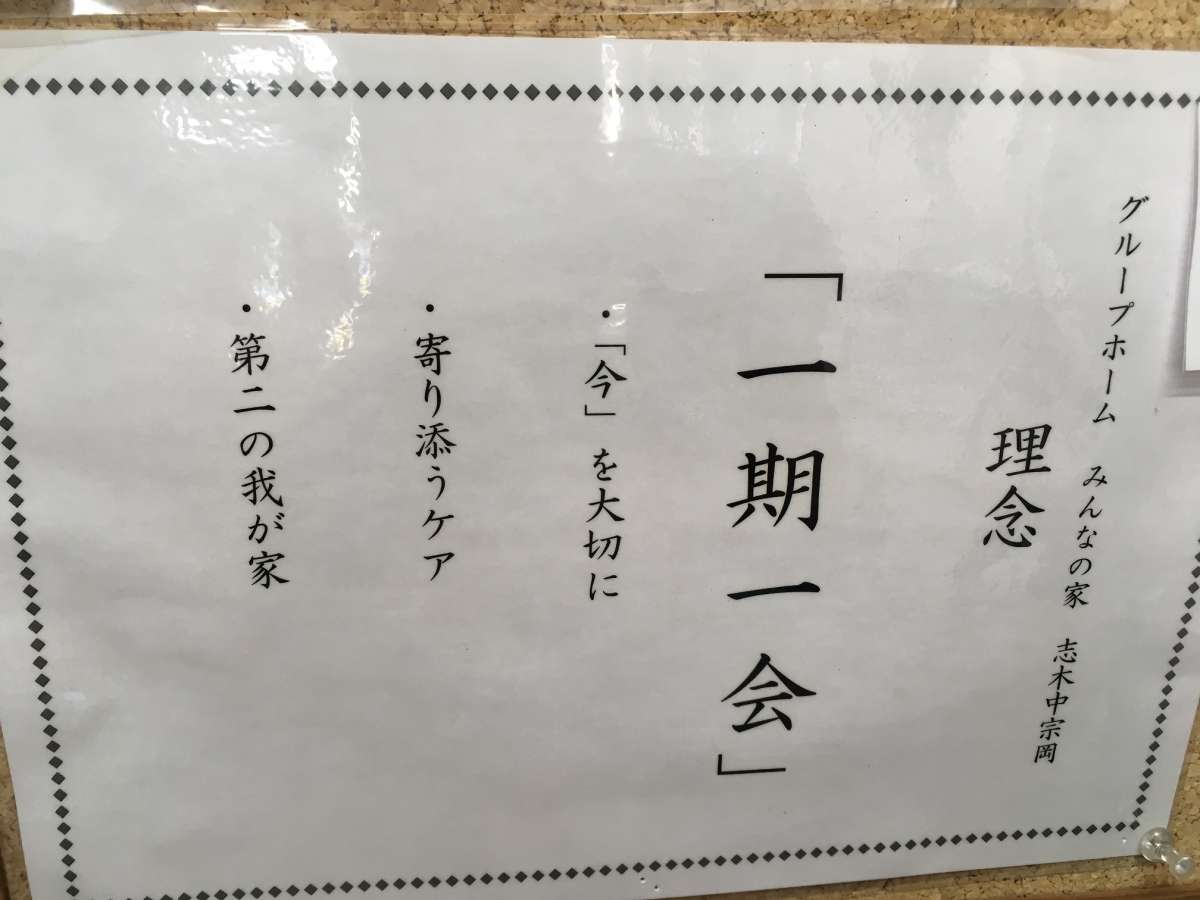 グループホーム　みんなの家　志木中宗岡
理念
「一期一会」
・「今」を大切に
・寄り添うケア
・第二の我が家